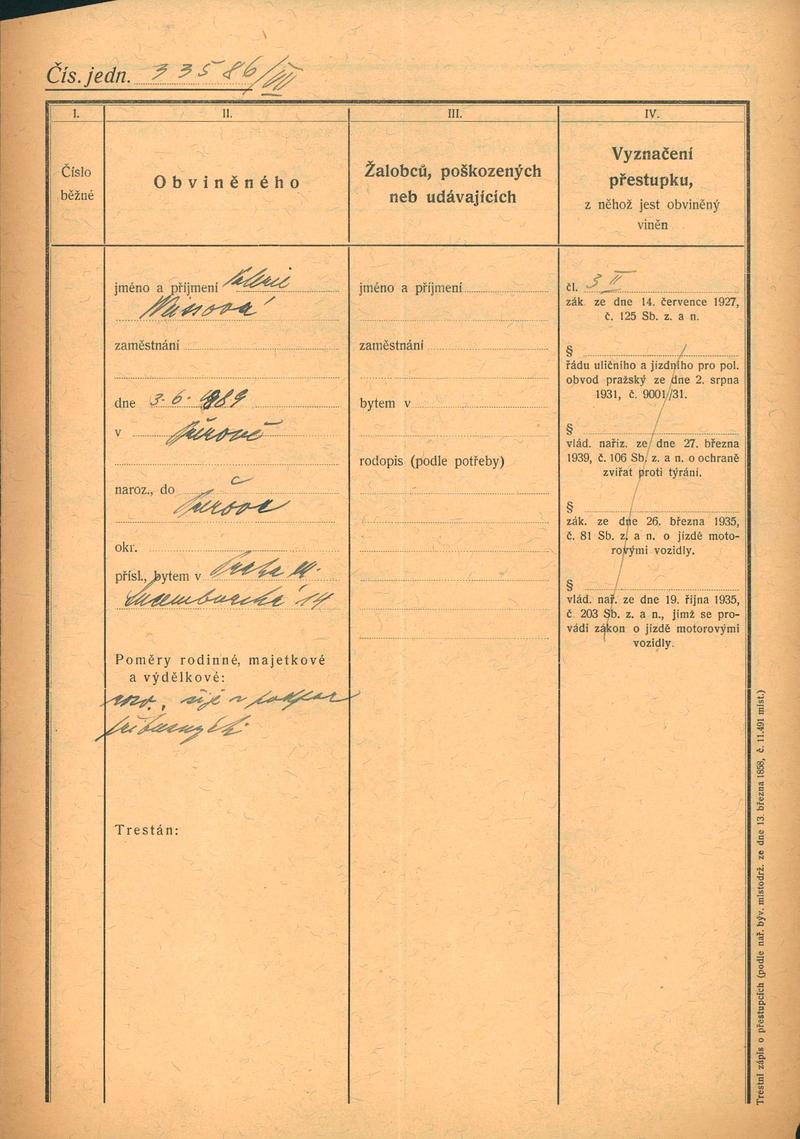 Čís. jedn. 33586/VII
I.
Číslo
běžné
II.
Obviněného
III.
Žalobců, poškozených
neb udávajících
IV.
Vyznačení
přestupku,
z něhož jest obviněný
viněn
jméno a příjmení Valerie
Weissová
zaměstnání
dne 3. 6. 1889
v
naroz., do
okr.
přísl., bytem v Praha
14
Poměry rodinné, majetkové
a výdělkové:
žije z podpor
příbuzných
Trestán:
jméno a příjmení
zaměstnání
bytem v
rodopis (podle potřeby)
čl. 3 II
zák. ze dne 14. července 1927,
č. 125 Sb. z. a n.
§
řádu uličního a jízdního pro pol.
obvod pražský ze dne 2. srpna
1931, č. 9001/31.
§
vlád. naříz. ze dne 27. března
1939, č. 106 Sb. z. a n. o ochraně
zvířat proti týrání.
§
zák. ze dne 26. března 1935,
č. 81 Sb. z. a n. o jízdě moto-
rovými vozidly.
§
vlád. nař. ze dne 19. října 1935,
č. 203 Sb. z. a n., jímž se pro-
vádí zákon o jízdě motorovými
vozidly.
Trestní zápis o přestupcích (podle nař. býv. místodrž. ze dne 13. března 1858, č. 11.491 míst.)